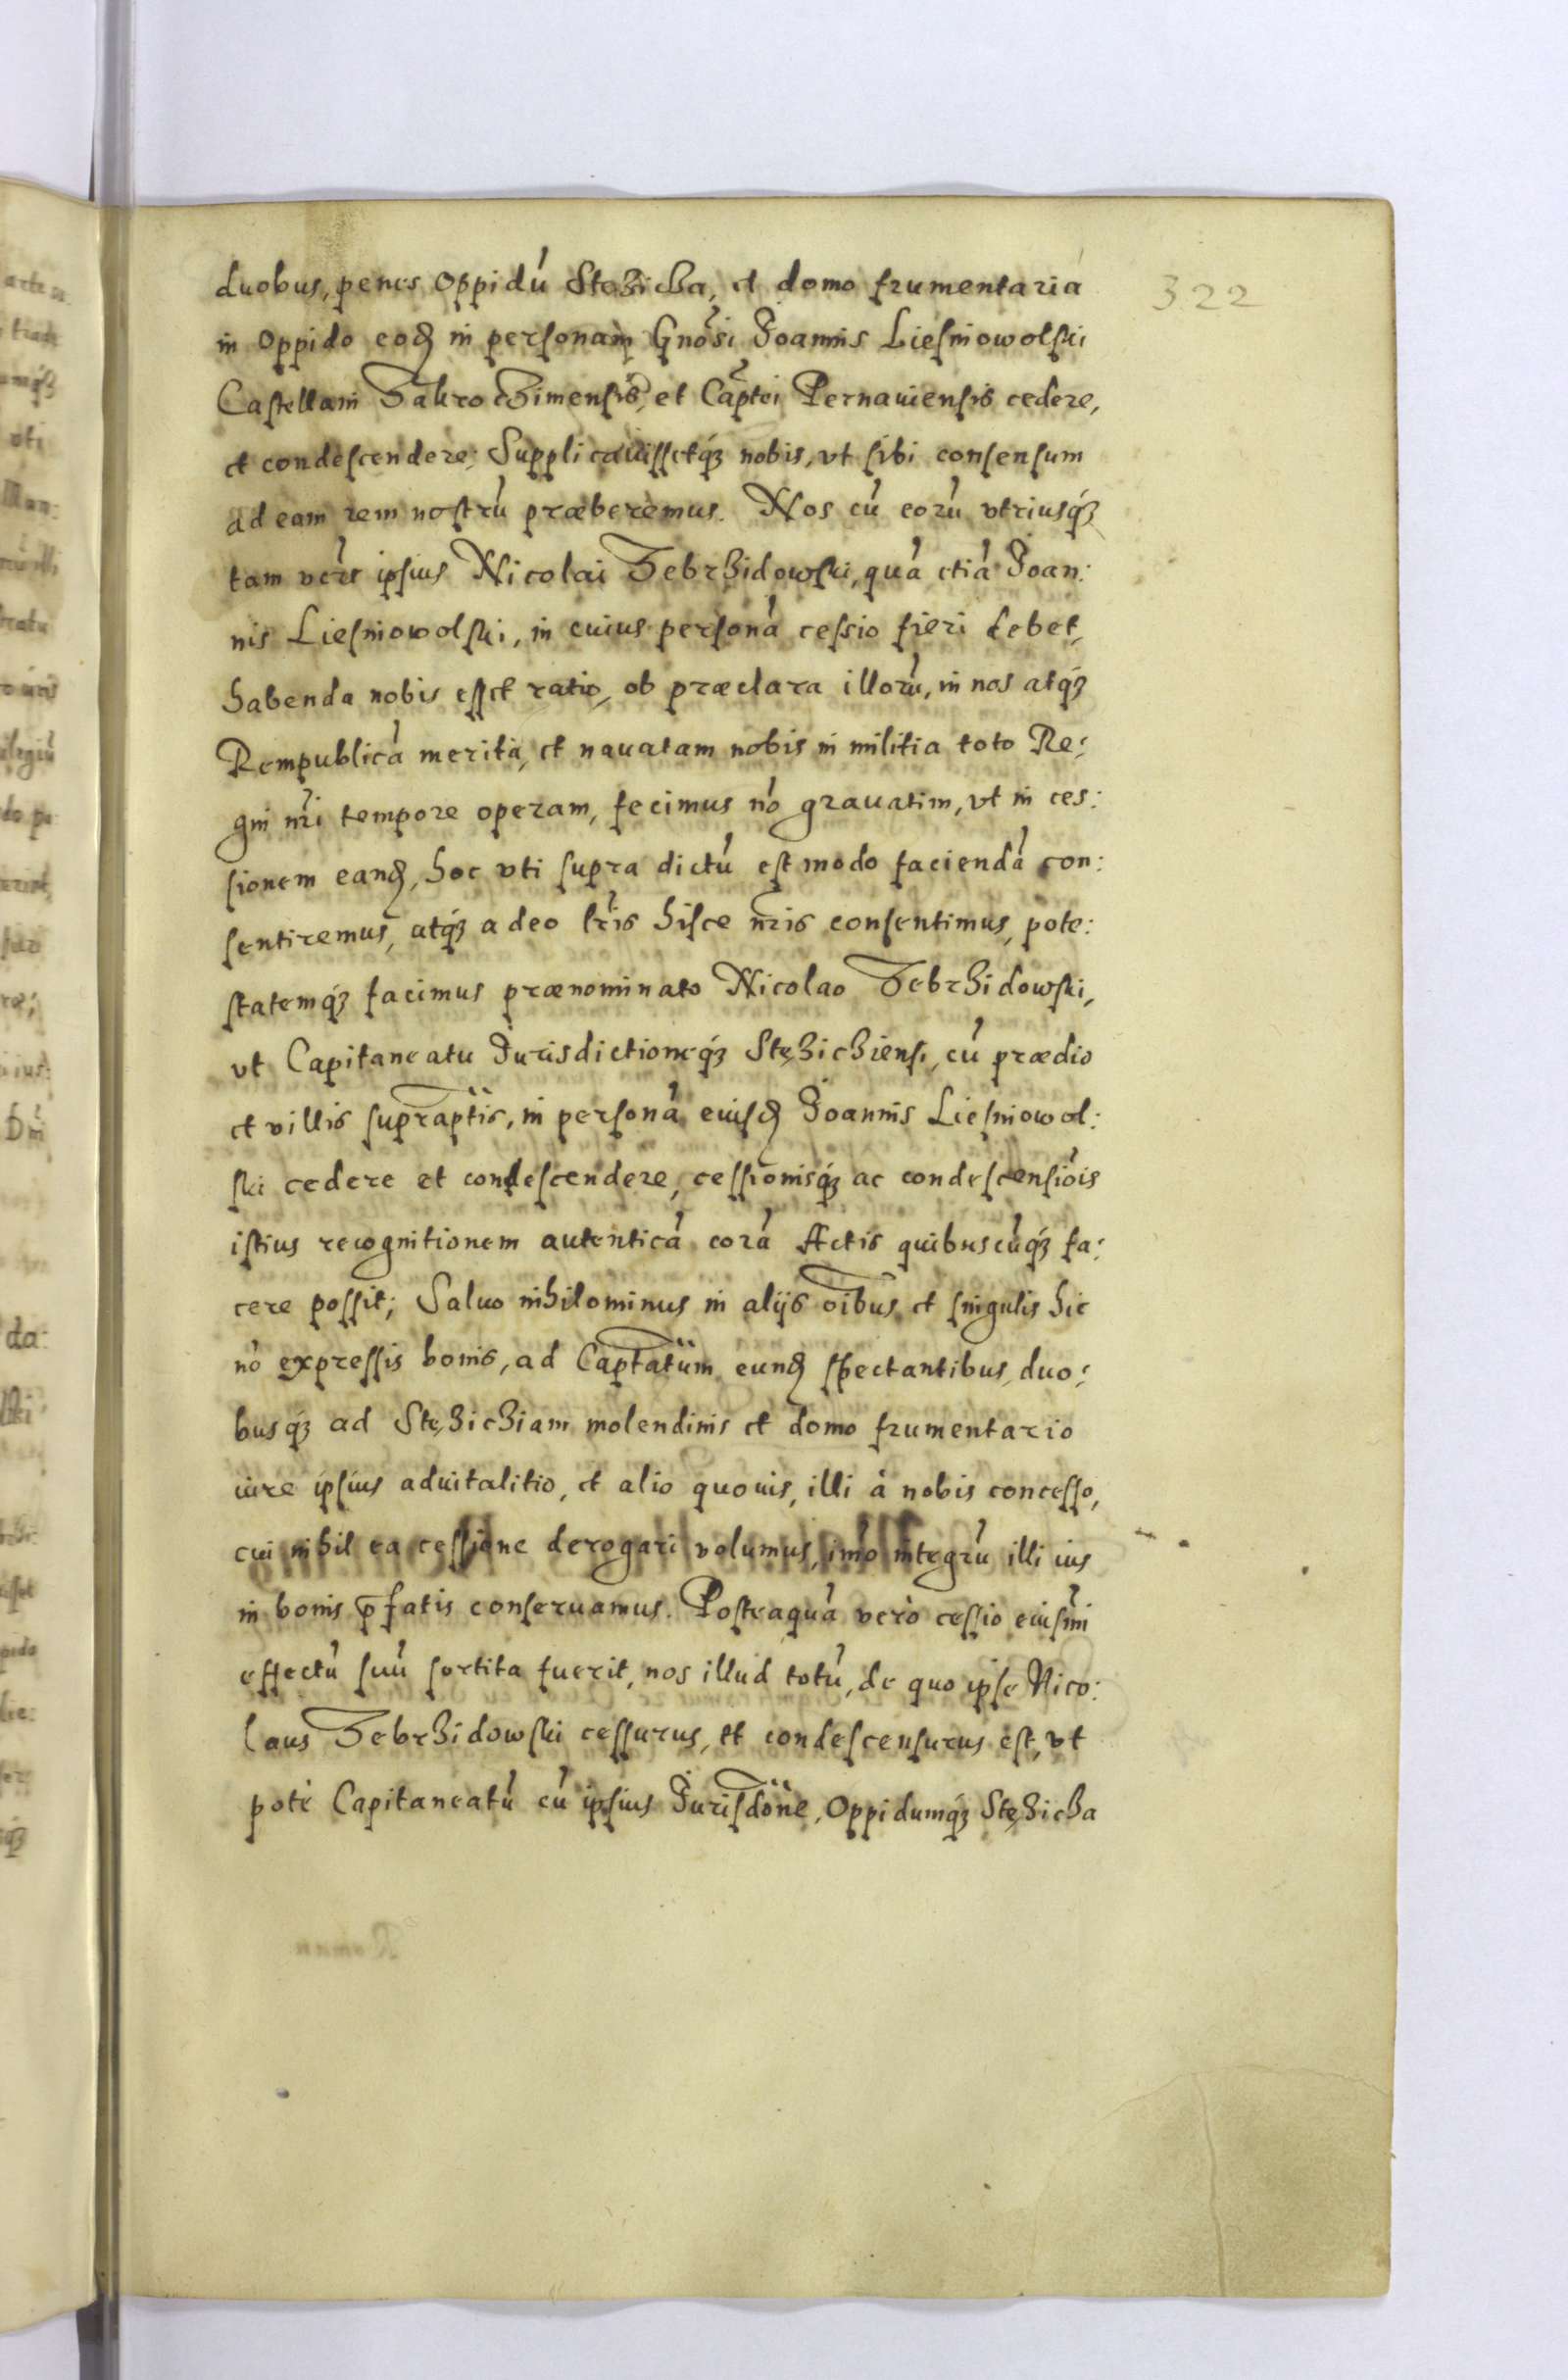 322
duobus, penes Oppidú Stężicha, et domo frumentaria
in Oppido eodꝫ in personam Gnõsi Joannis Liesniowolski
Castellani Zakroczimensis, et Captei Pernauiensis cedere,
et condescendere; Supplicauissetqꝫ nobis, vt sibi consensum
ad eam rem nostrú præberemus. Nos cú eorú vtriusqꝫ
tam verò ipsius Nicolai Zebrzidowski, quá etiá Joan:
nis Liesniowolski, in cuius personá cessio fieri debet,
habenda nobis esset ratio, ob præclara illorú, in nos atqꝫ
Rempublicá merita, et nauatam nobis in militia toto Re:
gni nr̃i tempore operam, fecimus nó grauatim, vt in ces:
sionem eandꝫ, hoc vti supra dictú est modo faciendá con:
sentiremus, atqꝫ adeo lr̃is hisce nr̃is consentimus, pote:
statemqꝫ facimus prænominato Nicolao Zebrzidowski,
vt Capitaneatu Jurisdictioneqꝫ Stężichiensi, cú prædio
et villis supraptis, in personá eiusdꝫ Joannis Liesniowol:
ski cedere et condescendere, cessionisqꝫ ac condescensiõis
istius recognitionem autenticá corá Actis quibuscúqꝫ fa:
cere possit; Saluo nihilominus in alijs oĩbus et singulis hic
nó expressis bonis, ad Captatum eundꝫ spectantibus, duo:
busqꝫ ad Stężichiam molendinis et domo frumentario
iure ipsius aduitalitio, et alio quouis, illi à nobis concesso,
cui nihil ea cessione derogari volumus, imò integrú illi ius
in bonis p̄fatis conseruamus. Posteaquá verò cessio eiusmi
effectú suú sortita fuerit, nos illud totú, de quo ipse Nico:
laus Zebrzidowski cessurus, et condescensurus est, vt
potè Capitaneatú cú ipsius Jurisdõne, Oppidumqꝫ Stężicha